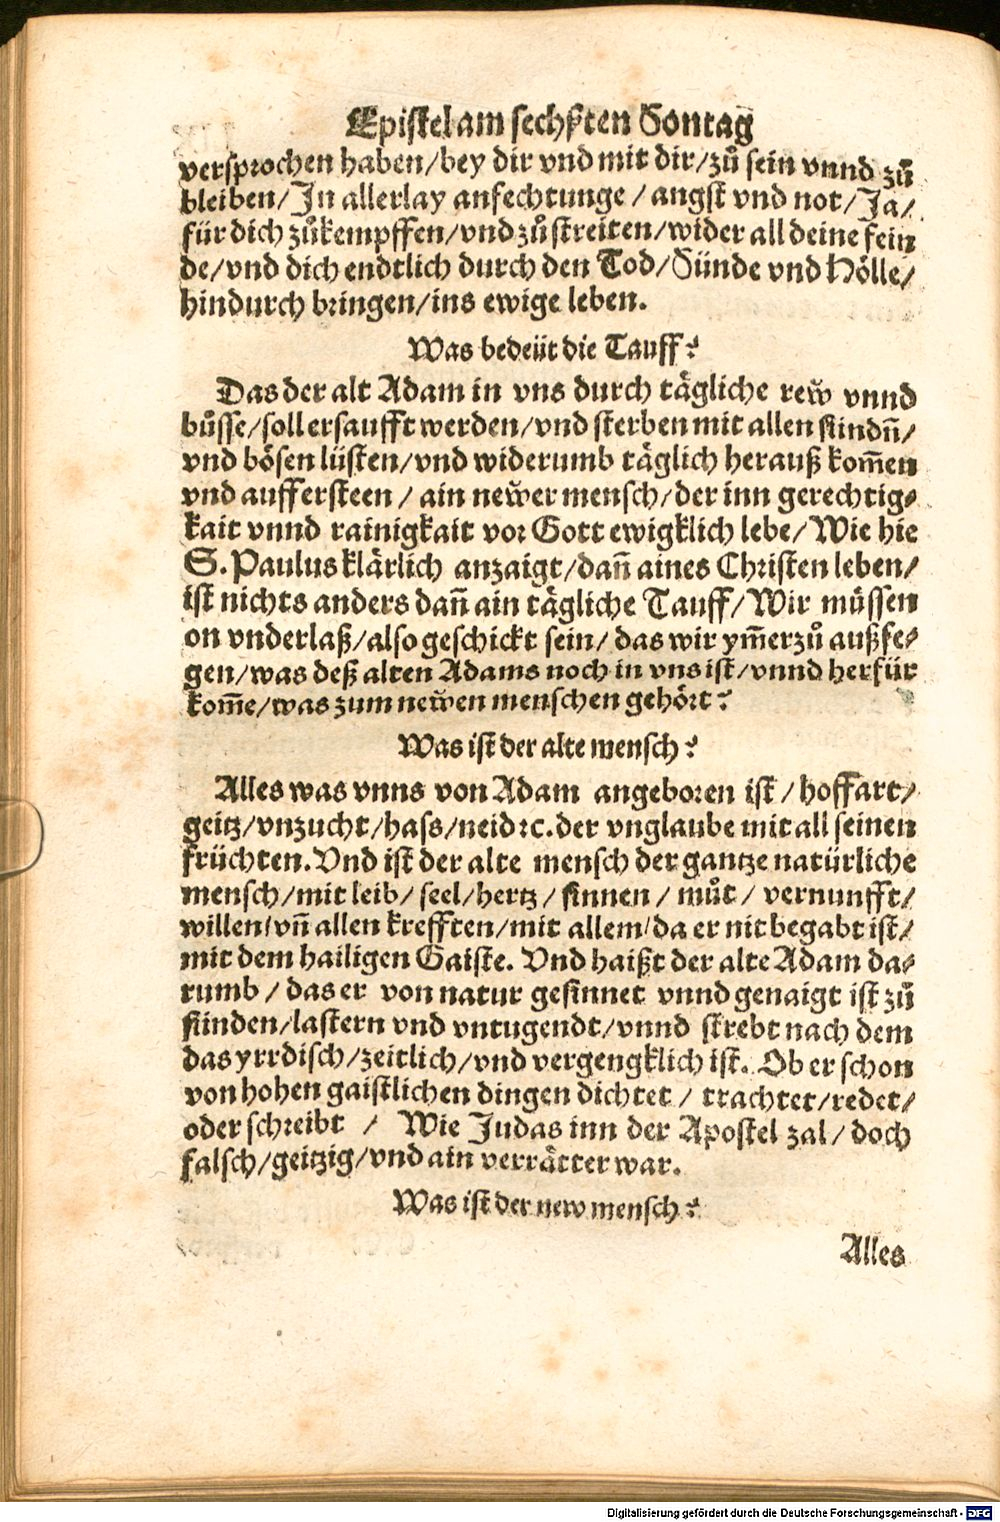 Epistel am sechsten Sontag
versprochen haben/bey dir vnd mit dir/zů sein vnnd zů
bleiben/In allerlay anfechtunge / angst vnd not/Ja/
für dich zůkempffen/vnd zů streiten/wider all deine fein
de/vnd dich endtlich durch den Tod/Sünde vnd Hölle/
hindurch bringen/ins ewige leben.
Was bedeüt die Tauff?
Das der alt Adam in vns durch tägliche rew̆ vnnd
bůsse/soll ersaufft werden/vnd sterben mit allen sündn̄/
vnd bösen lüsten/vnd widerumb täglich herauß kom̄en
vnd auffersteen / ain new̆er mensch/der inn gerechtig⸗
kait vnnd rainigkait vor Gott ewigklich lebe/Wie hie
S. Paulus klärlich anzaigt/dan̄ aines Christen leben/
ist nichts anders dan̄ ain tägliche Tauff/Wir müssen
on vnderlaß/also geschickt sein/ das wir ym̄erzů außfe⸗
gen/was deß alten Adams noch in vns ist/vnnd herfür
kom̄e/was zum new̆en menschen gehört?
Was ist der alte mensch?
Alles was vnns von Adam angeboren ist/hoffart/
geitz/vnzucht/hass/neid ꝛc. der vnglaube mit all seinen
früchten. Vnd ist der alte mensch der gantze natürliche
mensch/mit leib/ seel/hertz/ sinnen / můt / vernunfft/
willen/vn̄ allen krefften/mit allem/da er nit begabt ist/
mit dem hailigen Gaiste. Vnd haißt der alte Adam da⸗
rumb / das er von natur gesinnet vnnd genaigt ist zů
sünden/lastern vnd vntugendt/vnnd strebt nach dem
das yrrdisch/zeitlich/vnd vergengklich ist. Ob er schon
von hohen gaistlichen dingen dichtet / trachtet/redet/
oder schreibt / Wie Judas inn der Apostel zal/ doch
falsch/geitzig/vnd ain verrätter war.
Was ist der new mensch?
Alles
Digitalisierung gefördert durch die Deutsche Forschungsgemeinschaft - DFG